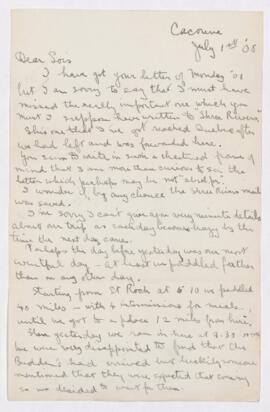 Cacouna
July 1st '08
Dear Sois
I have got your letter of Monday '08
but I am sorry to say that I must have
missed the really important one which you
must I suppose have written to Three Rivers.
This one that I've got reached Quebec after
we had left and was forwarded here.
You seem to write in such a chastened frame of
mind that I am more than curious to see the
letter which perhaps may be not so
I wonder if by any chance the Three Rivers mail
was saved.
I'm sorry I can't give you very minute details
about our trip as each day becomes hazy by the
time the next day comes.
Perhaps the day before yesterday was our most
eventful day – at least we paddled farther
than on any other day.
Starting from St Roch at 6 10 we paddled
40 miles – with 4 intermissions for meals,
until we got to a place 12 miles from here,
Then yesterday we ran in here at 9.30
We were very disappointed to find that the
hadn't arrived but luckily someone
mentioned that they were expected that evening
so we decided to wait for them.